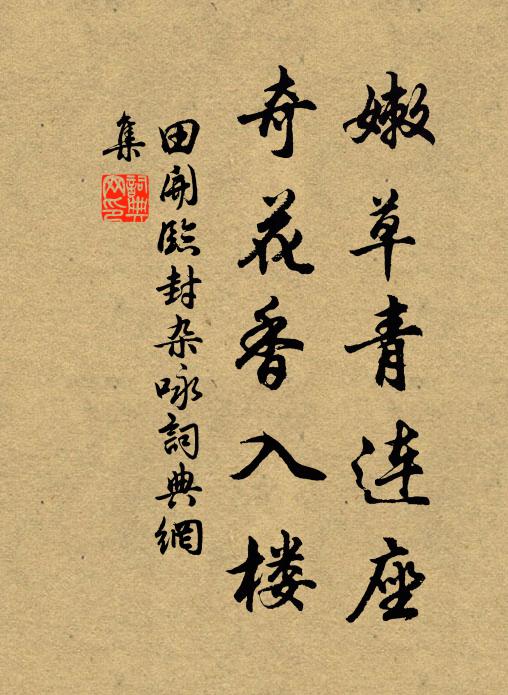 嫩草青连座
奇花香入楼
田開臨封杂咏詞典網
集
詞典
网印